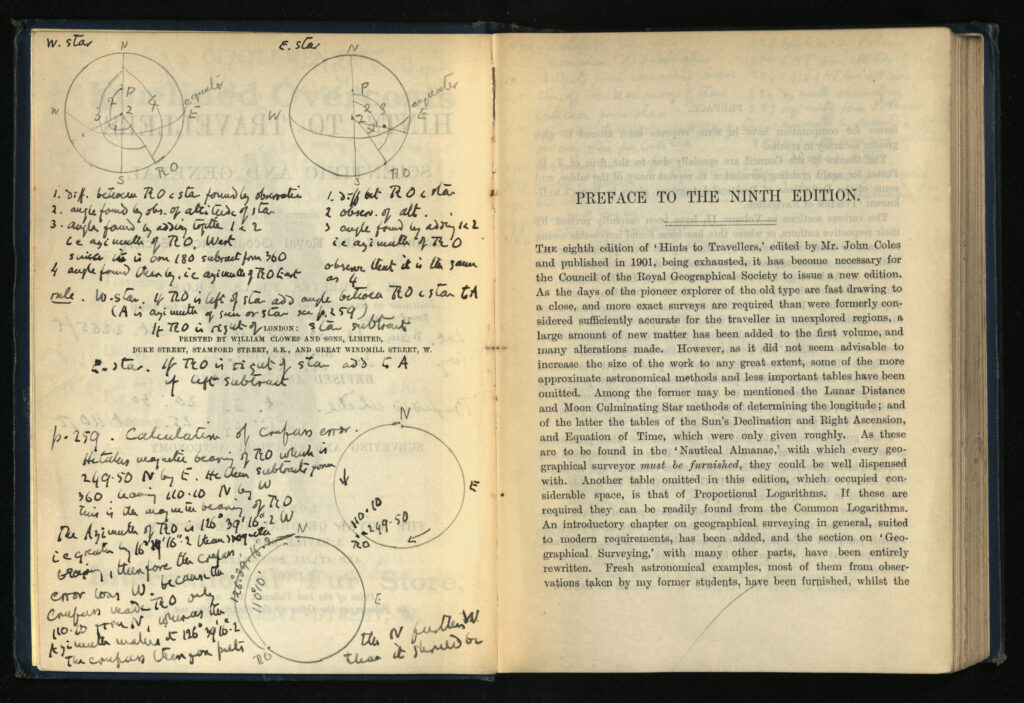 W. star
E. star
N
P
equator
W
E
S
RO
N
P
equator
W
E
S
RO
1. diff. between RO & star found by observation
2. angle found by obs. of altitude of star
3. angle found by adding togthr 1 & 2
i.e. azimuth of RO. West
since the is one 180 subtract from 360
4 angle found then by, i.e azimuth of RO East
1. diff bet RO & star
2 observ. of alt.
3 angle found by adding 1 & 2
i.e azimuth of RO
observe that it is the same
as 4
rule. W. star. If RO is left of star add angle between RO & star to A
(A is azimuth of sun or star see p. 259)
If RO is right of star subtract
LONDON:
PRINTED BY WILLIAM CLOWES AND SONS, LIMITED,
DUKE STREET, STAMFORD STREET, S.E., AND GREAT WINDMILL STREET, W.
E. star. If RO is right of star add to A
if left subtract
p. 259. Calculation of compass error.
He takes magnetic bearing of RO which is
249.50 N by E. He then subtracts from
360 leaving 110.10 N by W
This is the magnetic bearing of RO
The Azimuth of RO is 126° 39' 16".2 W
i.e greater by 16° 39' 16".2 than magnetic
bearing, therefore the compass
error was W. because the
compass made RO only
110.10 from N, whereas the
Azimuth makes it 126° 39' 16".2
The compass therefore puts
the N further W.
than it should be
N
E
110.10
249.50
RO
N
E
126° 39' 16".2
110°10'
RO
PREFACE TO THE NINTH EDITION.
THE eighth edition of 'Hints to Travellers,' edited by Mr. John Coles
and published in 1901, being exhausted, it has become necessary for
the Council of the Royal Geographical Society to issue a new edition.
As the days of the pioneer explorer of the old type are fast drawing to
a close, and more exact surveys are required than were formerly con-
sidered sufficiently accurate for the traveller in unexplored regions, a
large amount of new matter has been added to the first volume, and
many alterations made. However, as it did not seem advisable to
increase the size of the work to any great extent, some of the more
approximate astronomical methods and less important tables have been
omitted. Among the former may be mentioned the Lunar Distance
and Moon Culminating Star methods of determining the longitude; and
of the latter the tables of the Sun's Declination and Right Ascension,
and Equation of Time, which were only given roughly. As these
are to be found in the 'Nautical Almanac,' with which every geo-
graphical surveyor must be furnished, they could be well dispensed
with. Another table omitted in this edition, which occupied con-
siderable space, is that of Proportional Logarithms. If these are
required they can be readily found from the Common Logarithms.
An introductory chapter on geographical surveying in general, suited
to modern requirements, has been added, and the section on 'Geo-
graphical Surveying,' with many other parts, have been entirely
rewritten. Fresh astronomical examples, most of them from obser-
vations taken by my former students, have been furnished, whilst the